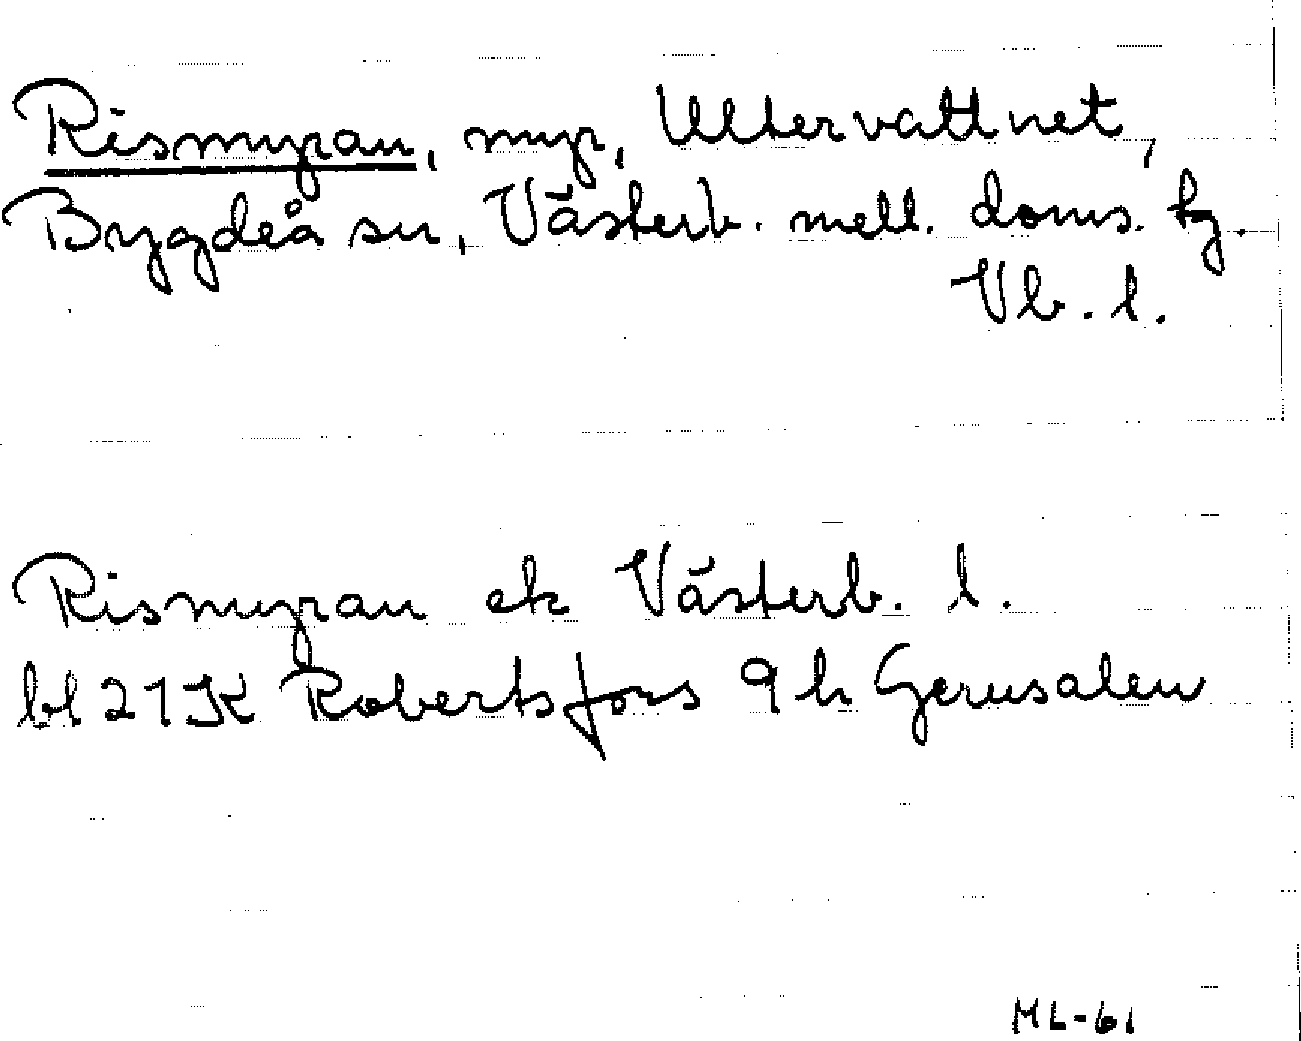 Rismyran, myr, Ultervattnet,
Bygdeå sn, Västerb. mell. doms. tg.
Vb. l.
Rismyran ek Västerb. l.
bl 21K Robertsfors 9 h Gerusalem
ML-61